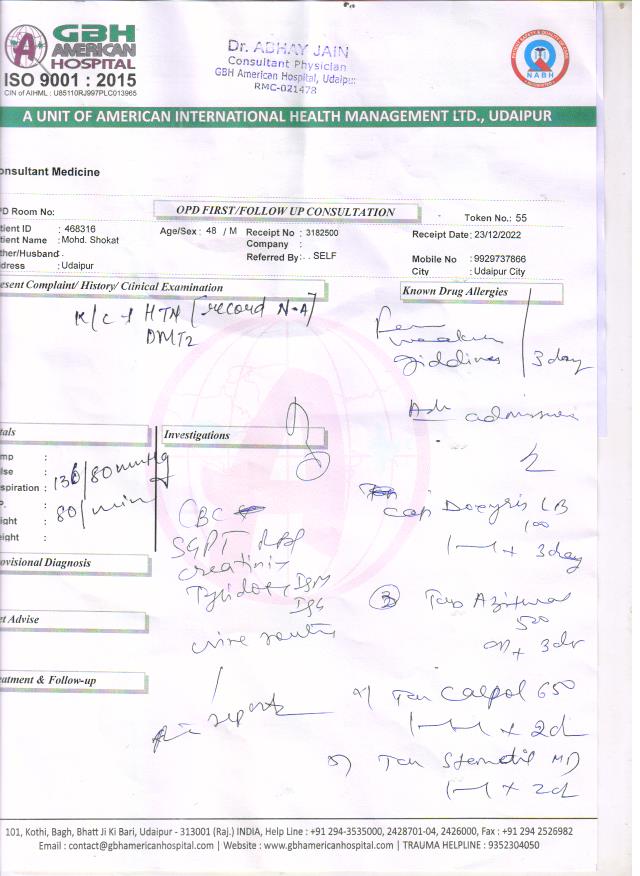 GBH
AMERICAN
HOSPITAL
ISO 9001 : 2015
CIN of AIHML : U85110RJ997PLC013965
Dr. ABHAY JAIN
Consultant Physician
GBH American Hospital, Udaipur
RMC-021478
NABH
A UNIT OF AMERICAN INTERNATIONAL HEALTH MANAGEMENT LTD., UDAIPUR
onsultant Medicine
PD Room No:
OPD FIRST/FOLLOW UP CONSULTATION
Token No.: 55
tient ID : 468316
Age/Sex : 48 / M
Receipt No : 3182500
Receipt Date: 23/12/2022
tient Name : Mohd. Shokat
Company :
ther/Husband :
Referred By: . SELF
Mobile No : 9929737866
dress : Udaipur
City : Udaipur City
esent Complaint/ History/ Clinical Examination
Known Drug Allergies
K/C + HTN [record N-A]
DMT2
giddines 3 day
Adv admission
tals
Investigations
mp :
lse :
spiration :
P. :
ight :
eight :
/80 mmHg
80/mint
CBC
SGPT
creatinin
IgM
IgG
urine routi
reports
ovisional Diagnosis
et Advise
eatment & Follow-up
cap Doxy LB
100
+ 3 day
Tab
500
+ 3
Tab Calpol 650
+ 2d
5) Tab Stemetil MD
+ 2d
101, Kothi, Bagh, Bhatt Ji Ki Bari, Udaipur - 313001 (Raj.) INDIA, Help Line : +91 294-3535000, 2428701-04, 2426000, Fax : +91 294 2526982
Email : contact@gbhamericanhospital.com | Website : www.gbhamericanhospital.com | TRAUMA HELPLINE : 9352304050